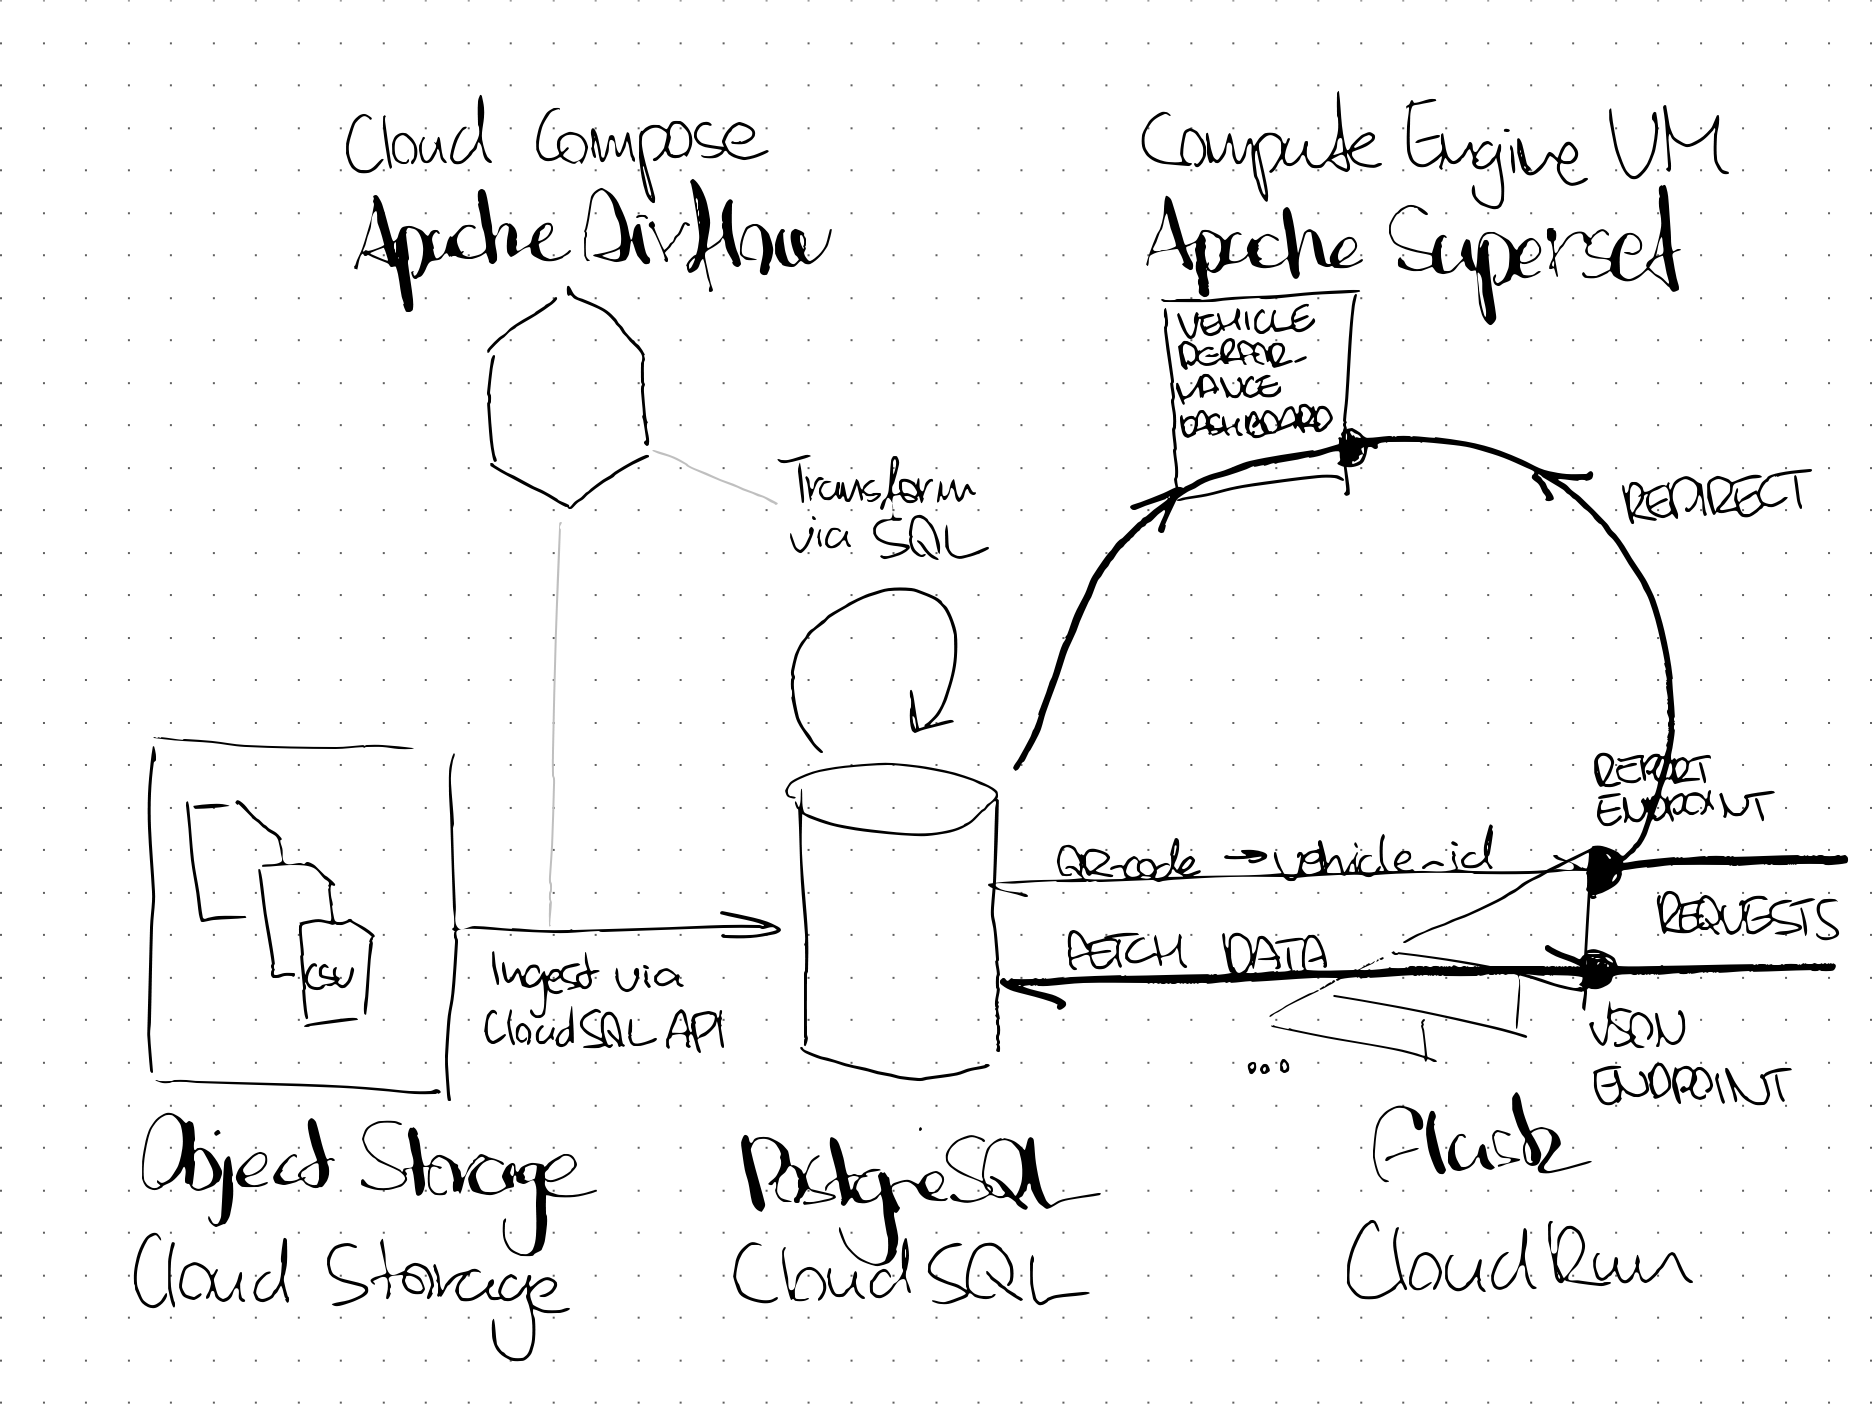 Cloud Compose
Apache Airflow
Compute Engine VM
Apache Superset
VEHICLE
PERFOR-
MANCE
DASHBOARD
Transform
via SQL
REDIRECT
REPORT
ENDPOINT
QR-code → vehicle-id
REQUESTS
FETCH DATA
CSV
Ingest via
CloudSQL API
...
JSON
ENDPOINT
Object Storage
Cloud Storage
PostgreSQL
CloudSQL
Flask
CloudRun